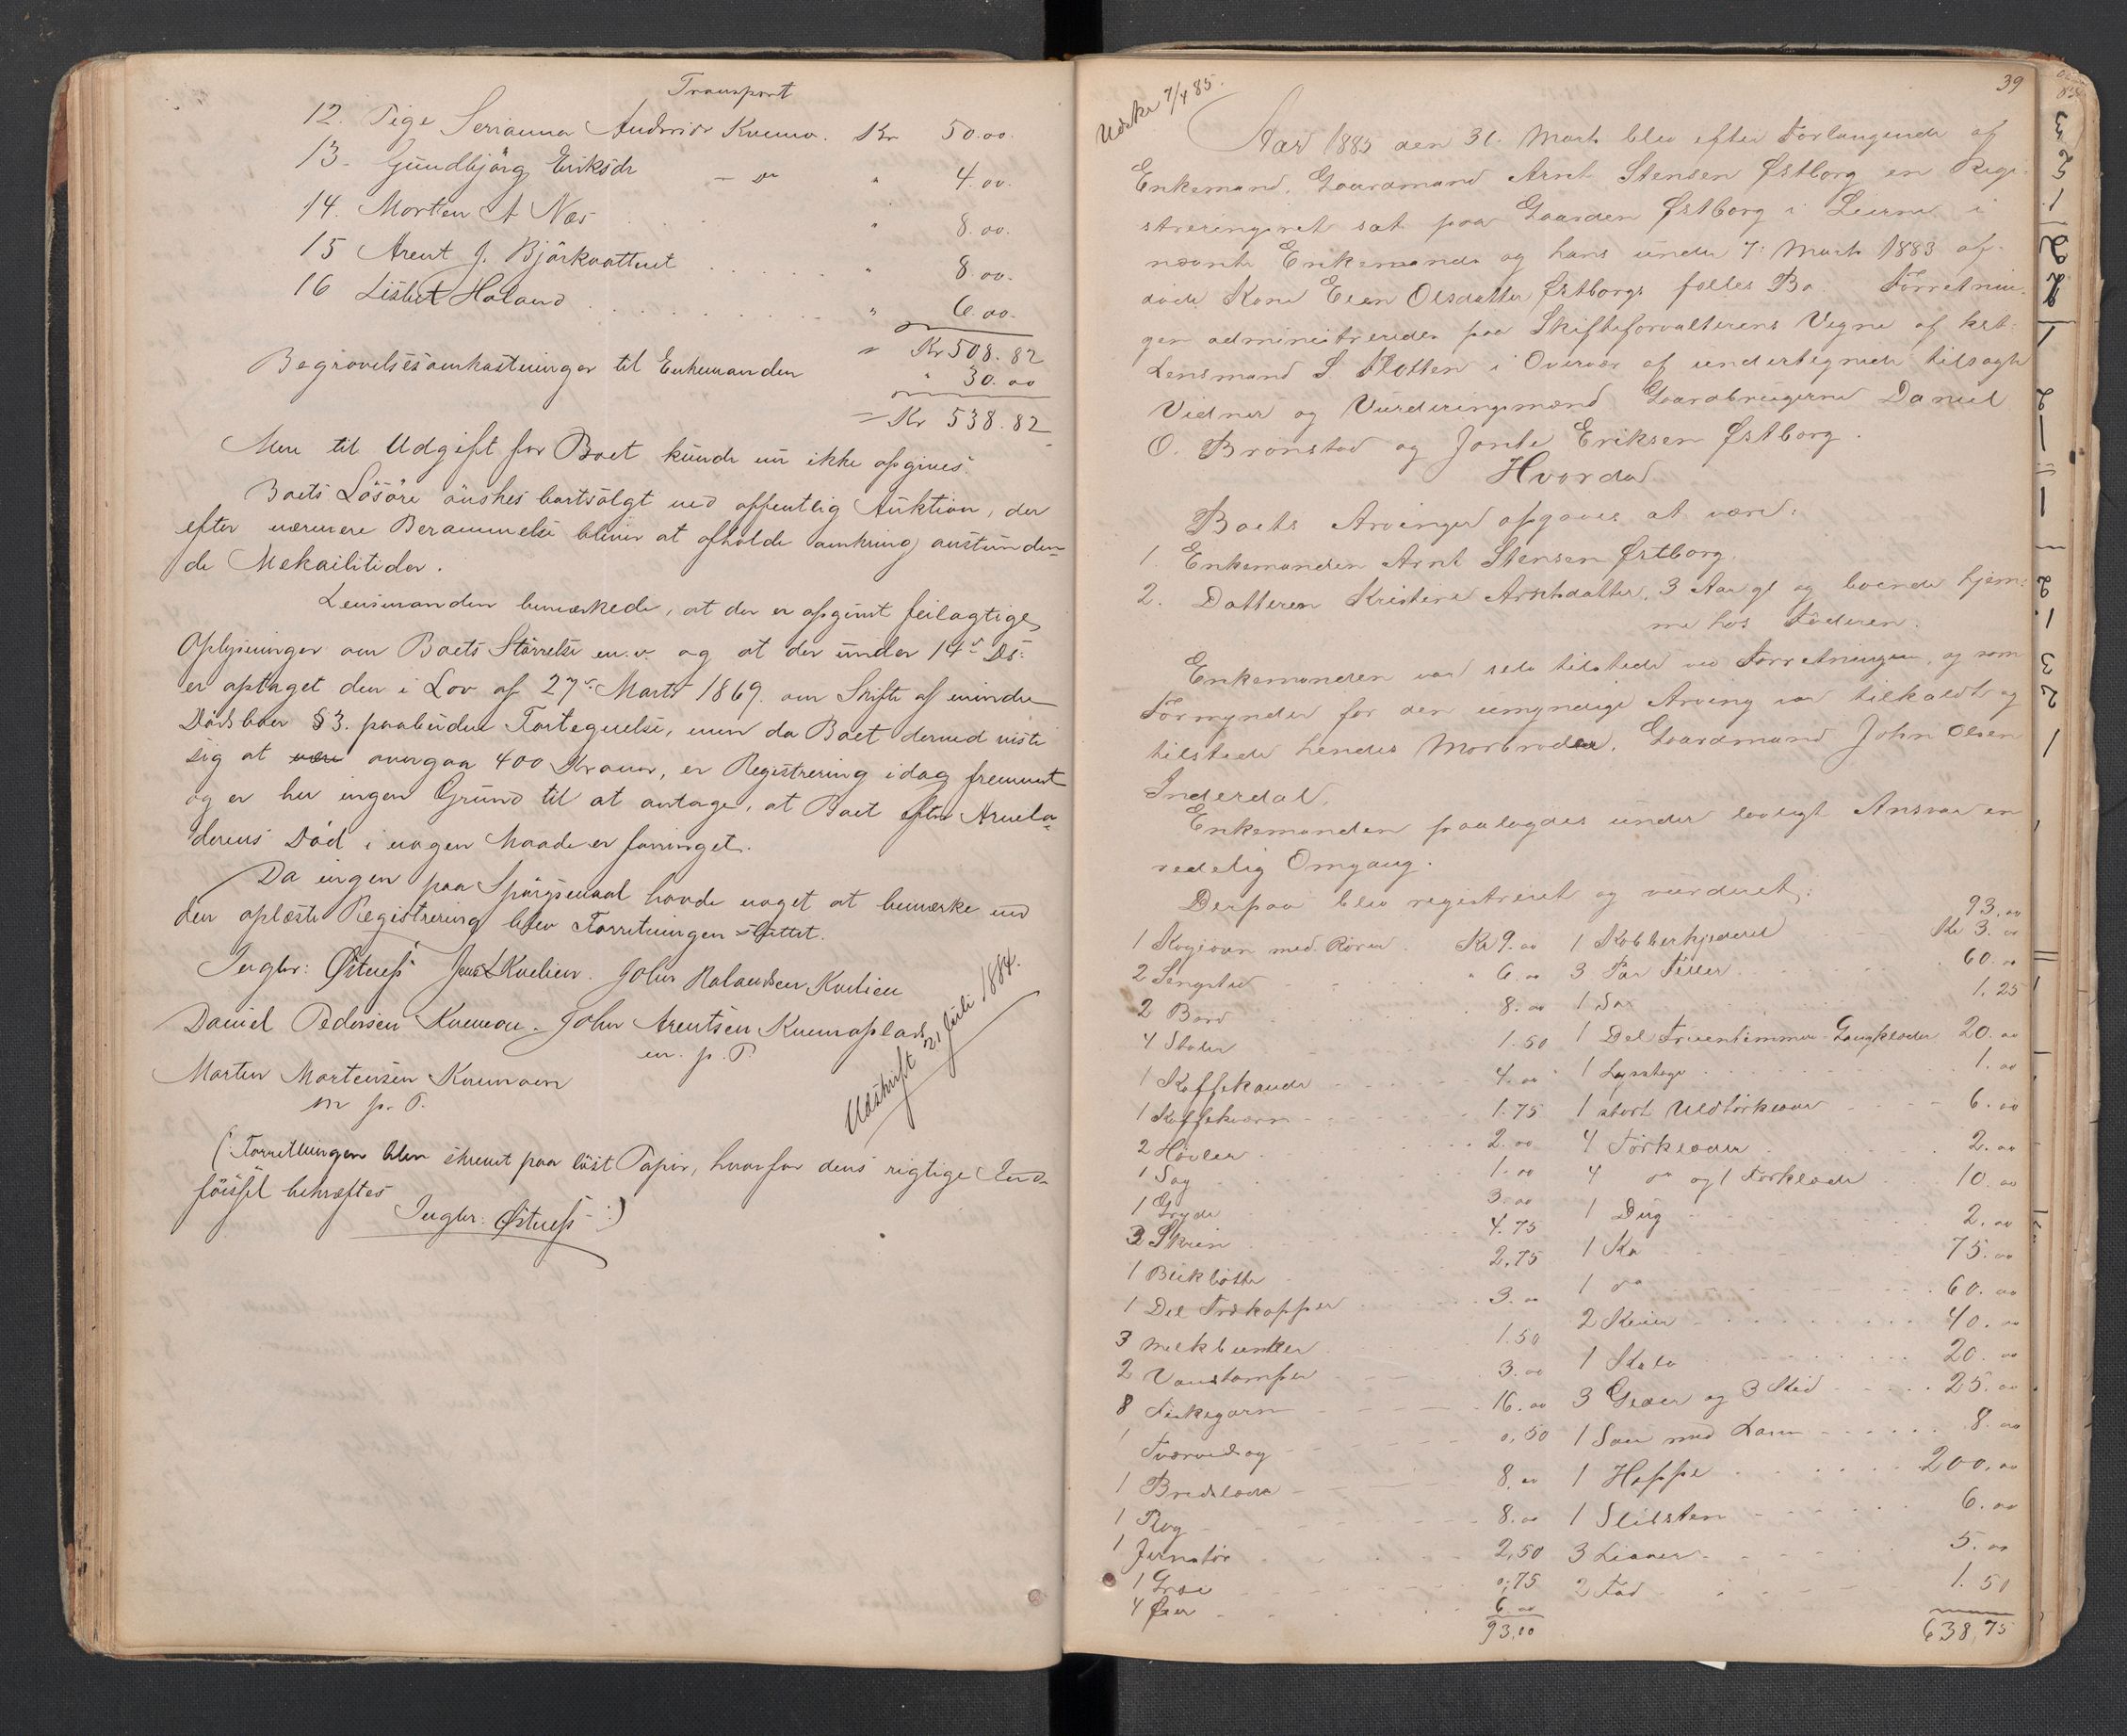 Transport
12. Pige Serianna Andrisdr Kvemo. Kr 50.00.
13- Gundbjörg Eriksdr - Do " 4.00.
14. Morten A Næs . . " 8.00.
15 Arent J. Björkvattnet . . . . . . " 8.00.
16 Lisbet Holand . . . . . . . . . . " 6.00.
" Kr 508.82
Begravelsesomkostninger til Enkemanden " 30.00
= Kr 538.82
Mere til Udgift for Boet kunde nu ikke opgives.
Boets Lösöre önskes bortsolgt ved offentlig Auktion, der
efter nærmere Berammelse bliver at afholde omkring anstunden-
de Mekailitider.
Lensmanden bemærkede, at der er afgivet feilagtige
Oplysninger om Boets Størrelse m.v. og at der under 14de Ds:
er optaget den i Lov af 27de Marts 1869 om Skifte af mindre
Dödsboer § 3. paabudne Fortegnelse, men da Boet derved viste
sig at være overgaa 400 Kroner, er Registrering idag fremmet
og er her ingen Grund til at antage, at Boet efter Arvela-
derens Död i nogen Maade er forringet.
Da ingen paa Spörgsmaal havde noget at bemærke ved
den oplæste Registrering blev Forretningen sluttet.
Ingbr: Østness Jens Kvelien. John Rolandsen Kvelien
Daniel Pedersen Kvemoen. John Arentsen Kvemoplads
m. p. P.
Morten Mortensen Kvemoen
m p. P.
Udskrift 21 Juli 1884.
(: Forretningen blev skrevet paa löst Papir, hvorfor dens rigtige Ind-
förssel bekræftes
Ingbr: Østness :)
39
Udskr 7/4 85.
Aar 1885 den 31. Marts blev efter Forlangende af
Enkemand, Gaardmand Arnt Stensen Østborg en Regi-
streringsret sat paa Gaarden Østborg i Lierne i
nævnte Enkemands og hans under 7. Marts 1883 af-
döde Kone Elen Olsdatter Østborgs fælles Bo. Forretnin-
gen administreredes paa Skifteforvalterens Vegne af kst.
Lensmand S. Flotten i Overvær af undertegnede tilsagte
Vidner og Vurderingsmænd Gaardbrugerne Daniel
O. Bronstad og Jonte Eriksen Østborg.
Hvorda
Boets Arvinger opgaves at være:
1. Enkemanden Arnt Stensen Østborg.
2. Datteren Kristine Arntsdatter, 3 Aar gl og boende hjem:
me hos Faderen.
Enkemanden var selv tilstede ved Forretningen, og som
Formynder for den umyndige Arving var tilkaldt og
tilstede hendes Morbroder, Gaardmand John Olsen
Inderdal.
Enkemanden paalagdes under lovligt Ansvar en
redelig Omgang.
Derpaa blev registreret og vurderet:
93.00
1 Kogeovn med Rörer . Kr 9.00 1 Kobberkjedel - Kr 3.00
2 Sengsted - - - " 6.00 3 Par Feller . . . . . 60.00
2 Bord 8.00 1 Sa 1.25
4 Stoler 1.50 1 Del Fruentimmer-Gangklæder 20.00
1 Kaffekande 4.00 1 Lysstage 1.00
1 Kaffekværn 1.75 1 stort Uldtörklæde 6.00
2 Høvler 2.00 4 Törklæder 2.00
1 Sag 1.00 4 do og 1 Forklæde 10.00
1 Gryde 3.00 1 Dug 2.00
3 Skrin 4.75 1 Ko 75.00
1 Blikbötte 2.75 1 do 60.00
1 Del Trækopper 3.00 2 Kvier 40.00
3 Melkbunker 1.50 1 Kalv 20.00
2 Vandstamper 3.00 3 Gieder og 3 Kid 25.00
8 Fiskegarn 16.00 1 Sau med Lam 8.00
1 Tværvedsag 0,50 1 Hoppe 200.00
1 Bredslæde 8.00 1 Slibsten 6.00
1 Plog 8.00 3 Liaaer 5.00
1 Jernstör 2,50 2 Fad 1.50
1 Græv 0,75
4 Øxer 6.00
93,00 638,75